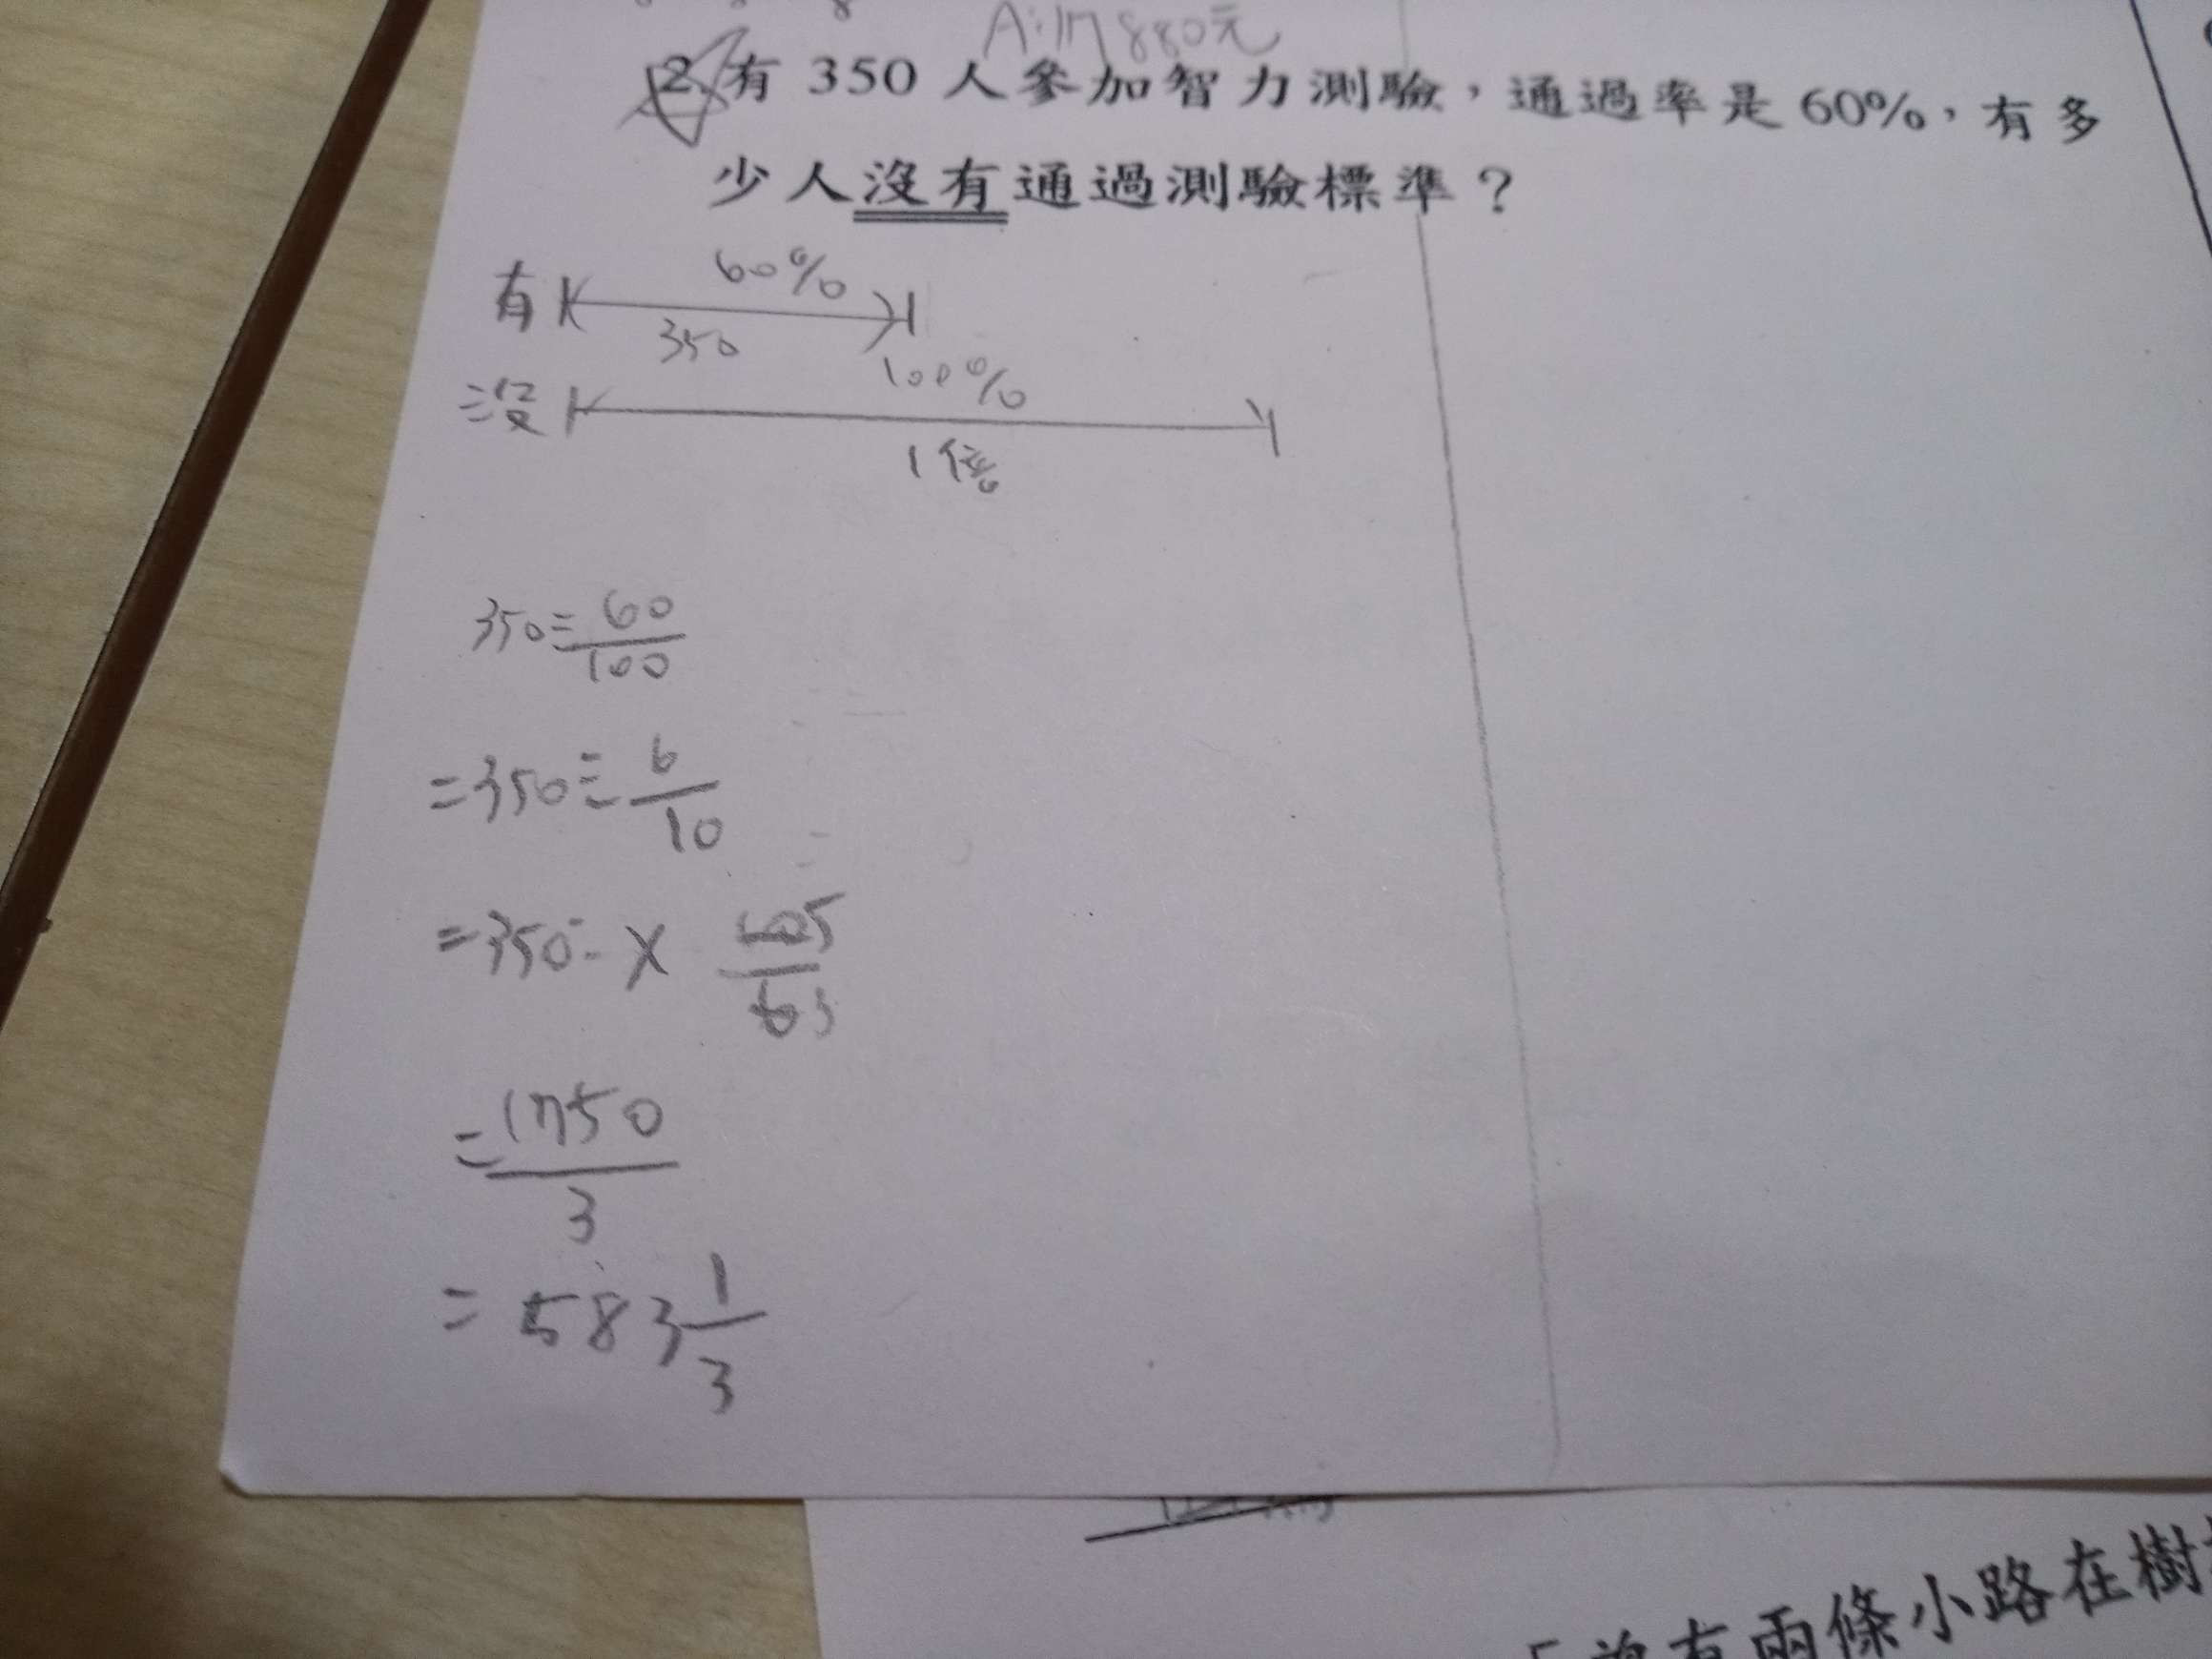 A:17880元
2. 有 350 人參加智力測驗，通過率是 60%，有多
少人沒有通過測驗標準？
有 60%
350
沒 100%
1倍
350÷60/100
=350÷6/10
=350÷×105/63
=1750/3
=583 1/3
有兩條小路在樹